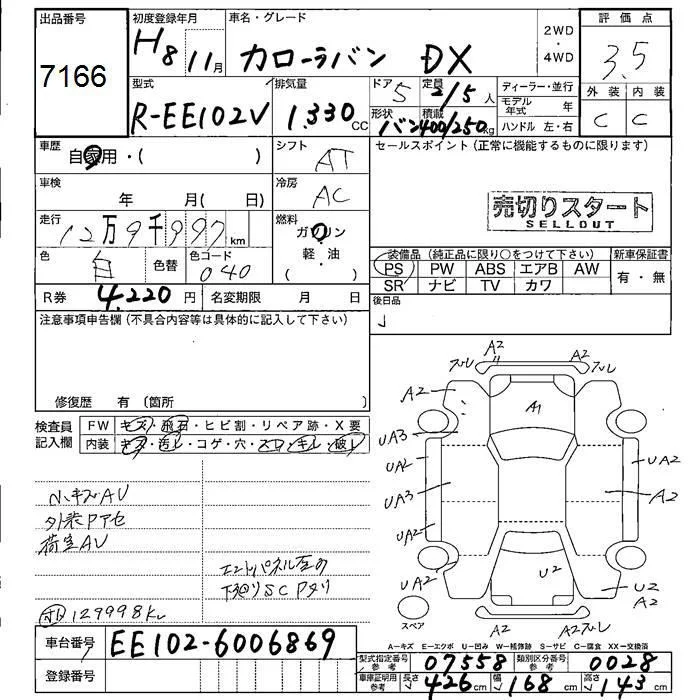 出品番号
7166
初度登録年月
H8 11月
車名・グレード
カローラバン DX
2WD
・
4WD
評価点
3.5
外装 内装
C C
型式
R-EE102V
排気量
1.330 CC
ドア 5
定員 2/5 人
形状 バン
積載 400/250kg
ディーラー・並行
モデル年式 年
ハンドル 左・右
車歴
自家用・( )
シフト
AT
セールスポイント(正常に機能するものに限ります)
売切りスタート
SELLOUT
車検
年 月( 日)
冷房
AC
走行
12万9千997km
燃料
ガソリン
軽・油
( )
色
白
色替
色コード
040
装備品(純正品に限り○をつけて下さい)
PS PW ABS エアB AW
SR ナビ TV カワ
新車保証書
有・無
R券 4.220円
名変期限 月 日
後日品
注意事項申告欄(不具合内容等は具体的に記入して下さい)
修復歴 有(箇所
検査員記入欄
FW キズ・飛石・ヒビ割・リペア跡・X要
内装 キズ・汚レ・コゲ・穴・スレ・キレ・破レ
外装Pアセ
荷室AU
下廻りSC
129998K
A2
A2
A2
A1
UA3
UA2
UA2
UA3
A2
UA2
UA2
U2
U2
A2
スペア
A2
A2ズレ
A-キズ E-エクボ U-凹み W-補修跡 S-サビ C-腐食 XX-交換済
車台番号 EE102-6006869
登録番号
型式指定番号参考 07558
類別区分番号参考 0028
車庫証明用参考 長さ 426cm 幅 168cm 高さ 143cm